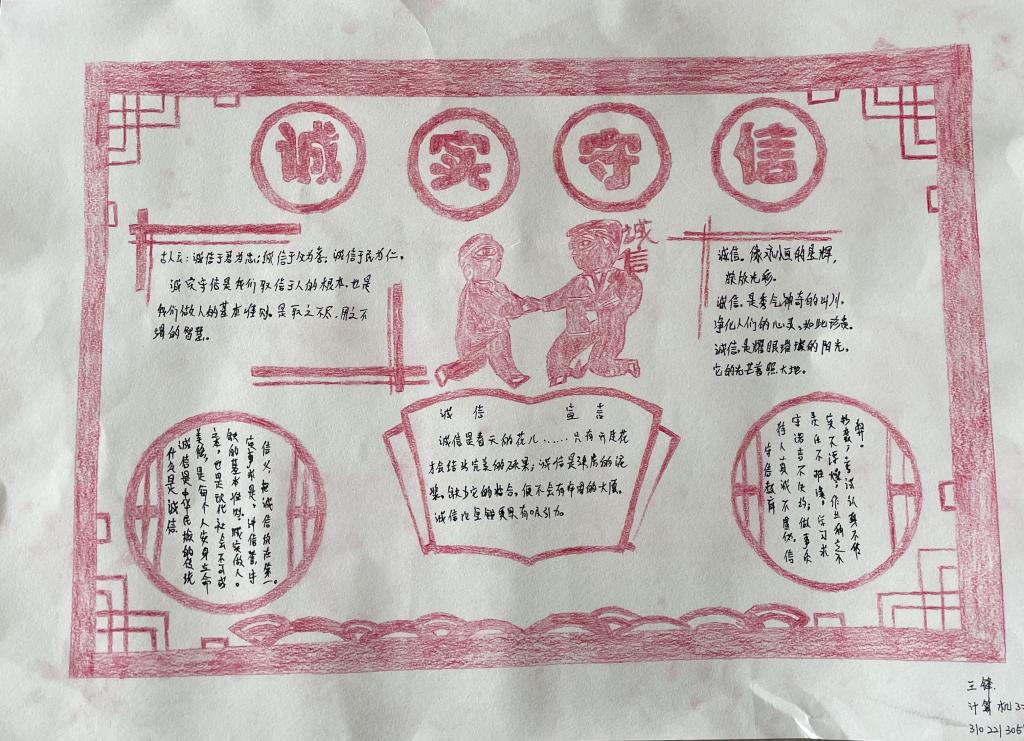 诚实守信
诚信
古人云：诚信于君为忠；诚信于父为孝；诚信于民为仁。
诚实守信是我们取信于人的根本，也是
我们做人的基本准则。是取之不尽、用之不
竭的智慧。
诚信。像永恒的星辉，
绽放光彩。
诚信。是秀气神奇的山川，
净化人们的心灵、如此珍贵。
诚信。是耀眼璀璨的阳光，
它的光芒普照大地。
诚信 宣言
诚信是春天的花儿……只有开足花
才会结出完美的硕果；诚信是建房的泥
浆。缺少它的粘合，便不会有牢固的大厦。
诚信比金钱更具有吸引力。
什么是诚信
诚信是中华民族的传统
美德，是每个人安身立命
之本，也是现代社会不可或
缺的基本准则。诚实做人。
实事求是，讲信誉，守
信义，把诚信放在第一。
守信教育
待人真诚不虚伪，信
守诺言不失约；做事负
责任不推诿，学习求
实不浮躁，作业独立不
抄袭，考试认真不作
弊。
王锋
计算机